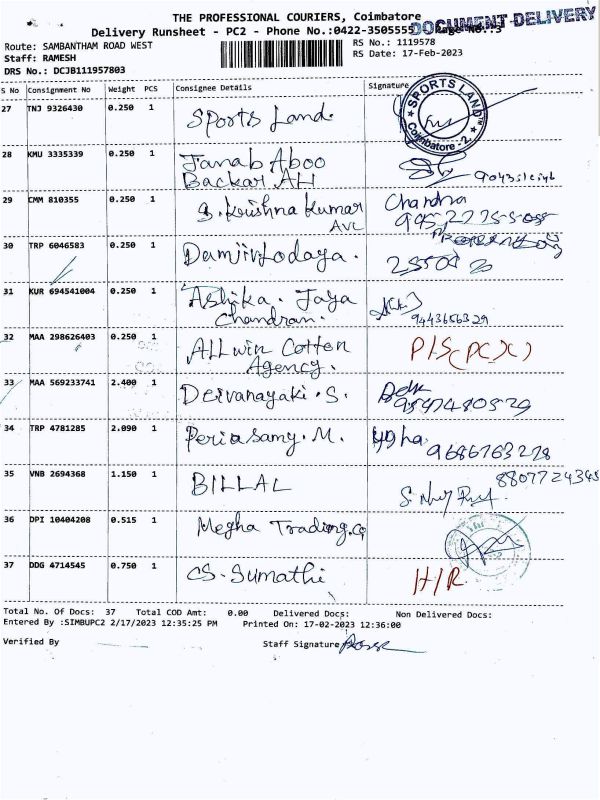 THE PROFESSIONAL COURIERS, Coimbatore
DOCUMENT DELIVERY
Delivery Runsheet - PC2 - Phone No.:0422-3505555
Route: SAMBANTHAM ROAD WEST
RS No.: 1119578
Staff: RAMESH
RS Date: 17-Feb-2023
DRS No.: DCJB111957803
S No Consignment No Weight PCS Consignee Details Signature
27 TNJ 9326430 0.250 1 Sports Land.
SPORTS LAND
Coimbatore - 2.
28 KMU 3335339 0.250 1 Janab Aboo
Backar.AH
29 CMM 810355 0.250 1 S. Krishna Kumar Chandra
AVL
30 TRP 6046583 0.250 1
31 KUR 694541004 0.250 1 Ashika. Jaya
Chandran. 9443656329
32 MAA 298626403 0.250 1 ALLwin Cotton
Agency.
33 MAA 569233741 2.400 1 Deivanayaki.S.
34 TRP 4781285 2.090 1 Periasamy.M. 9686763278
35 VNB 2694368 1.150 1 BILLAL 8807724345
36 DPI 10404208 0.515 1 Megha Trading.Co
37 DDG 4714545 0.750 1 CS-Sumathi H/R
Total No. Of Docs: 37 Total COD Amt: 0.00 Delivered Docs: Non Delivered Docs:
Entered By :SIMBUPC2 2/17/2023 12:35:25 PM Printed On: 17-02-2023 12:36:00
Verified By Staff Signature